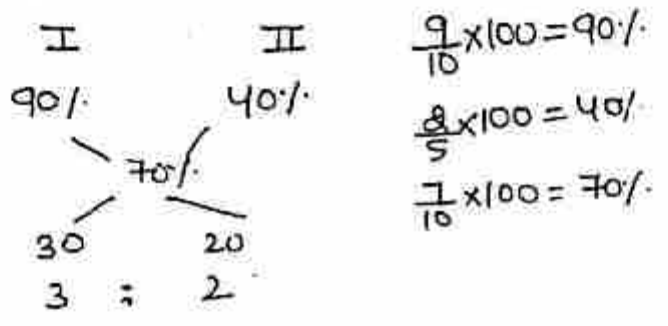 I II
90% 40%
70%
30 20
3 : 2
9/10 × 100 = 90%
2/5 × 100 = 40%
7/10 × 100 = 70%